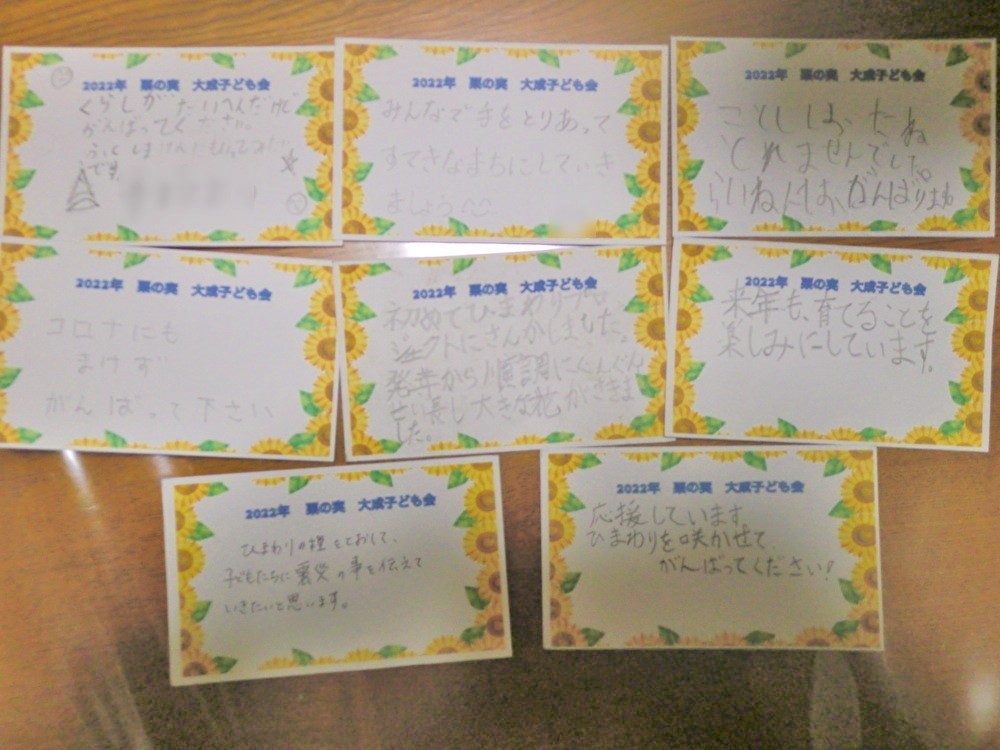 2022年 栗の実 大成子ども会
くらしがたいへんだけど
がんばってください。
です
2022年 栗の実 大成子ども会
みんなで手をとりあって
すてきなまちにしていき
ましょう
2022年 栗の実 大成子ども会
ことしは、たね
とれませんでした。
らいねんは、がんばりまね
2022年 栗の実 大成子ども会
コロナにも
まけず
がんばって下さい
2022年 栗の実 大成子ども会
初めてひまわりプロ
ジェクトにさんかしました。
発芽から順調にぐんぐん
成長し大きな花がさきま
した。
2022年 栗の実 大成子ども会
来年も、育てることを
楽しみにしています。
2022年 栗の実 大成子ども会
ひまわりの種をとおして、
子どもたちに震災の事を伝えて
いきたいと思います。
2022年 栗の実 大成子ども会
応援しています
ひまわりを咲かせて
がんばってください!